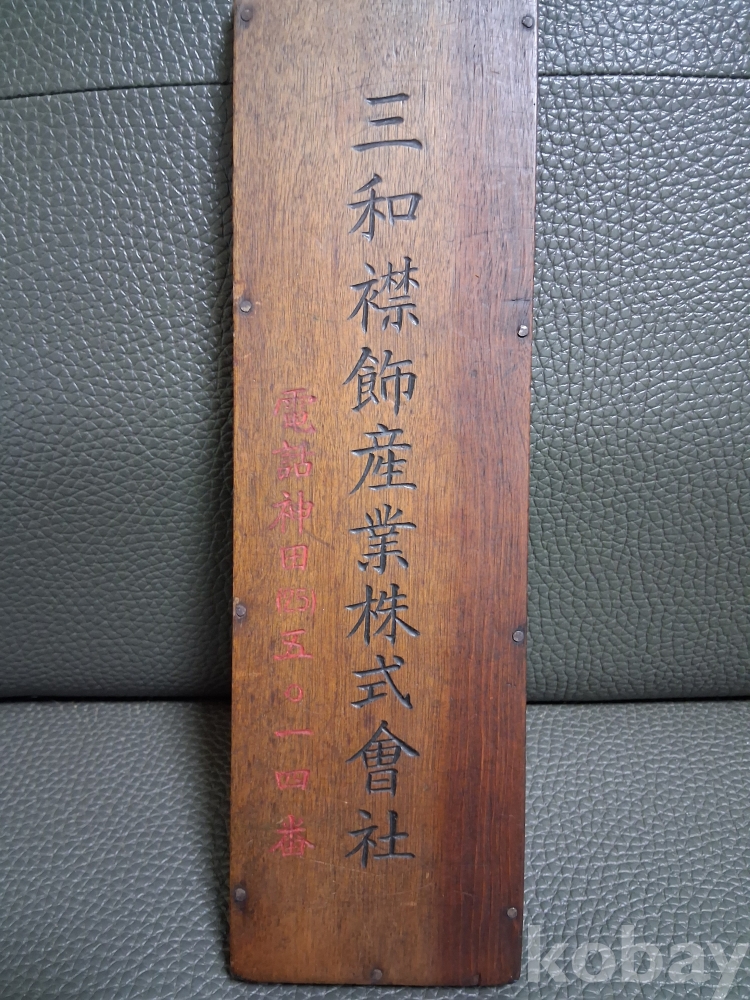 三和襟飾産業株式會社
電話神田(25)五〇一四番
kobay